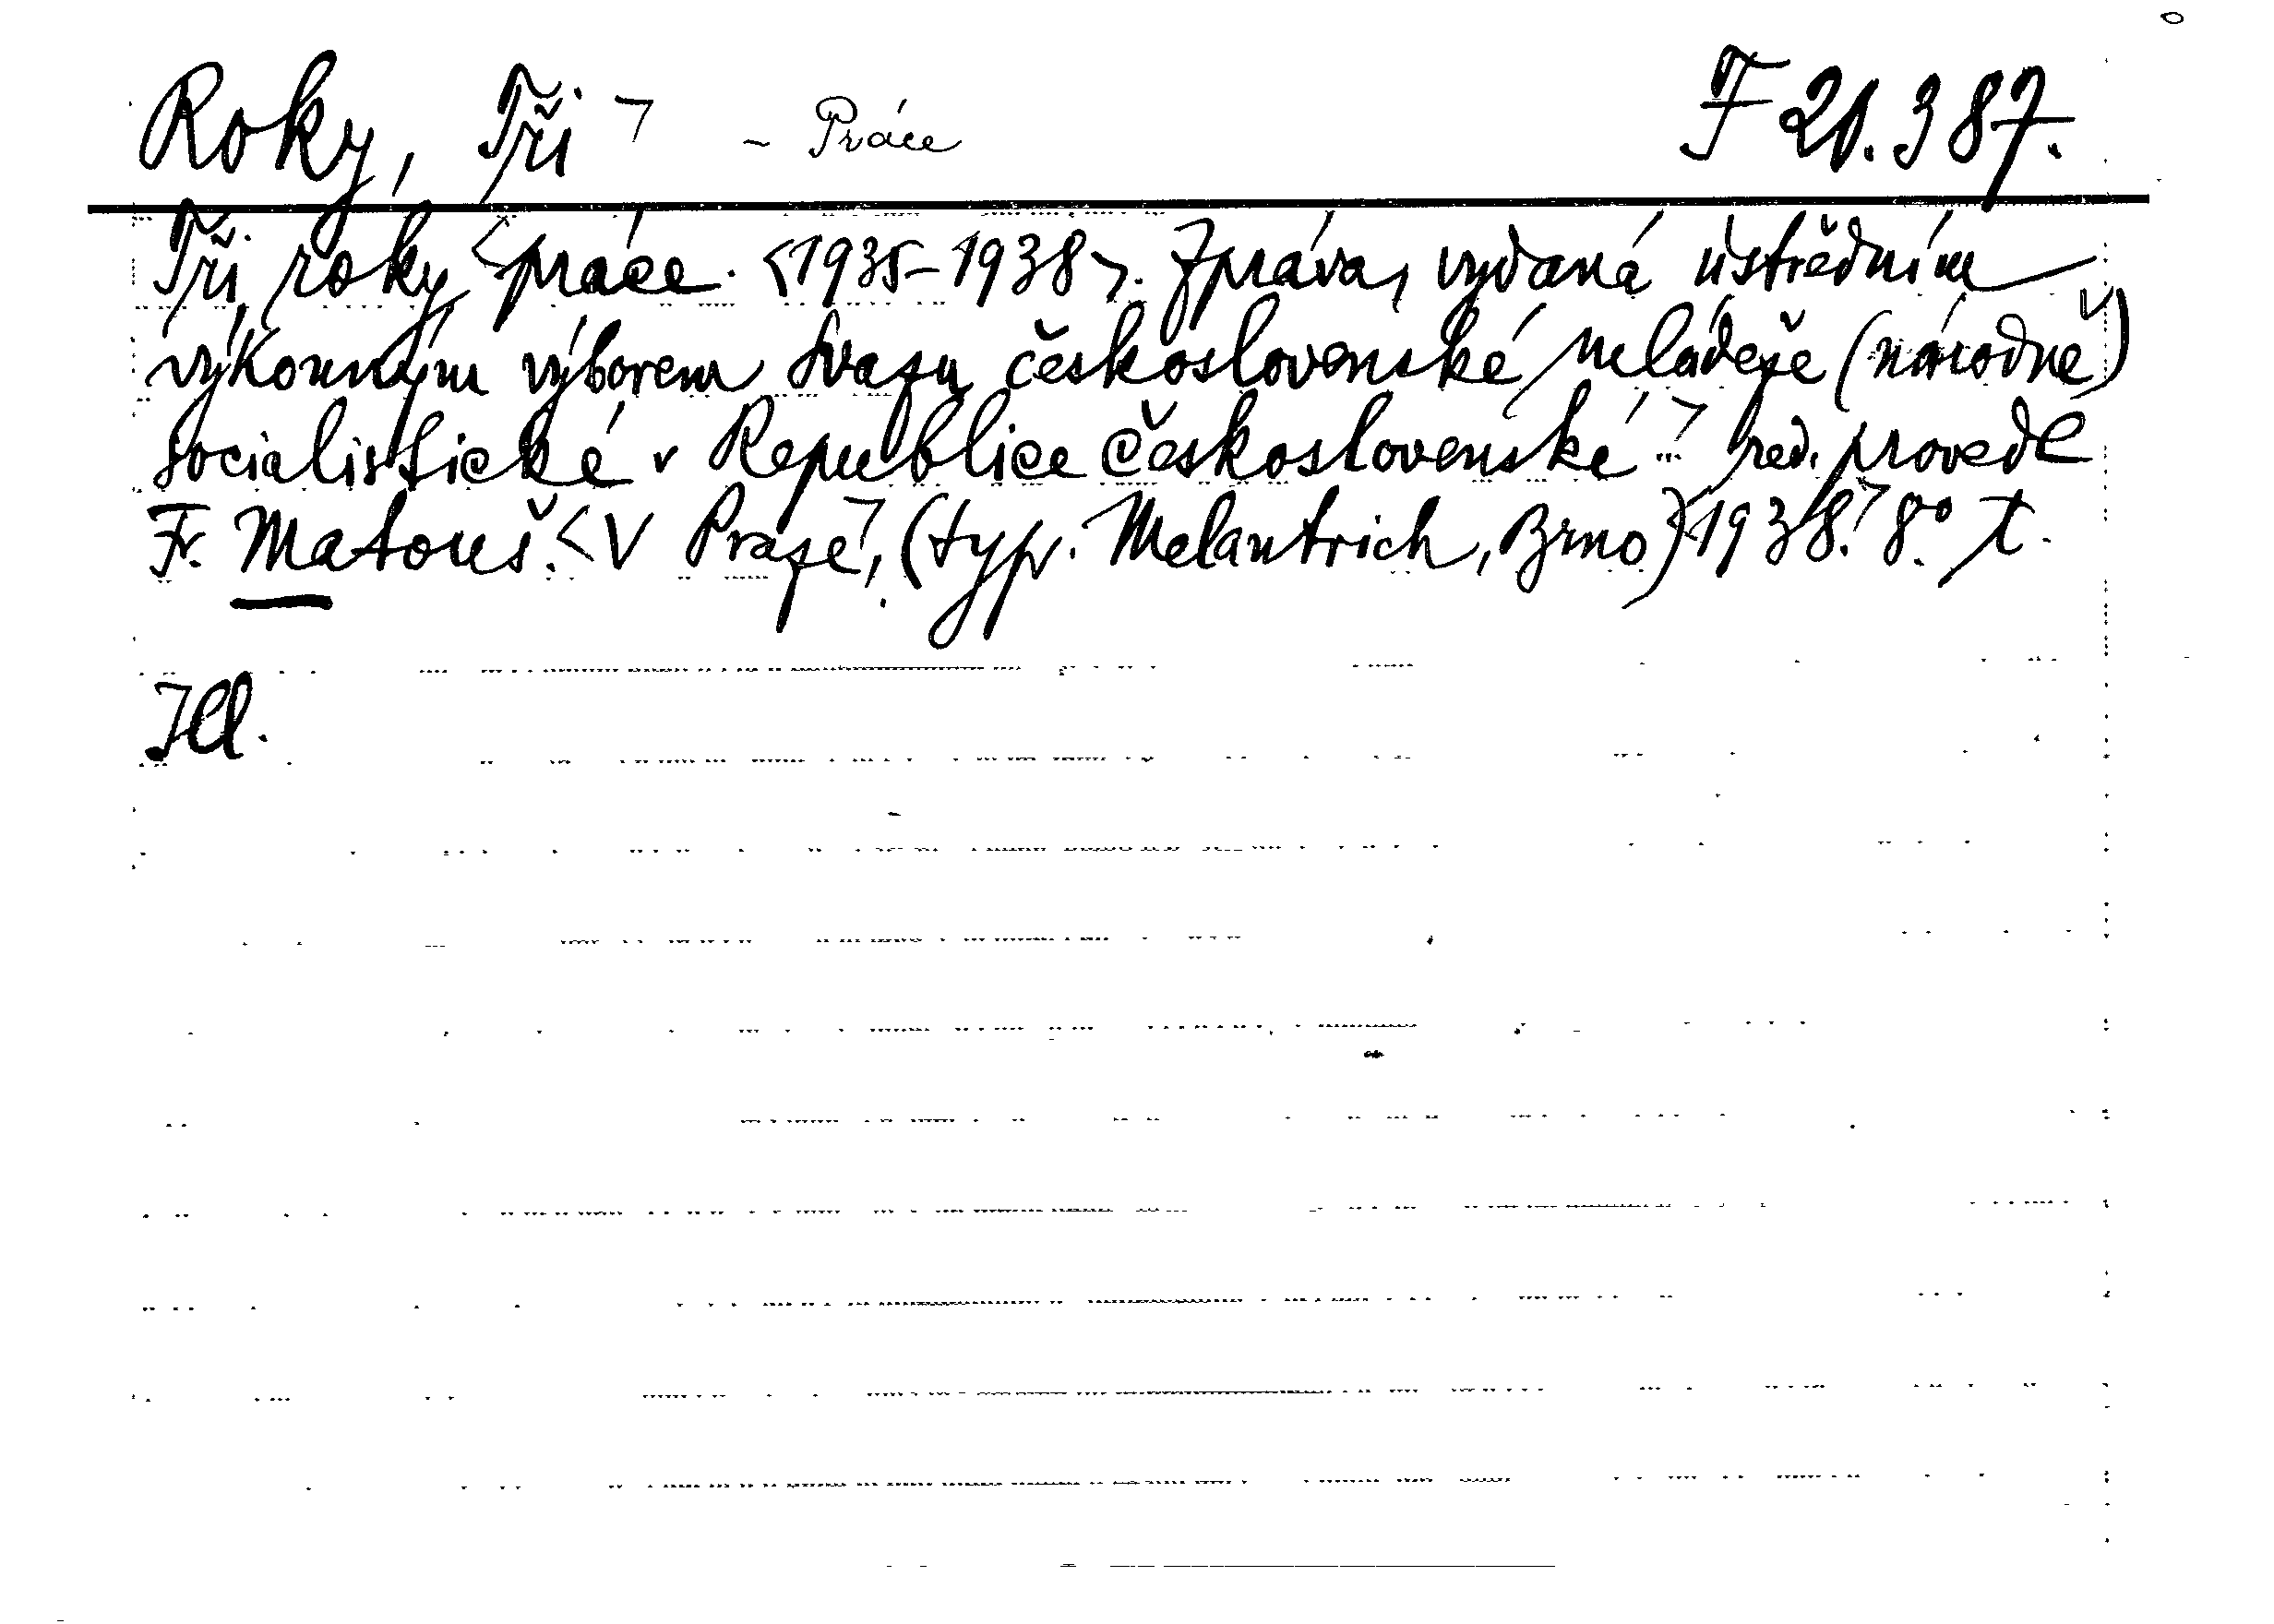 Roky, Tři ¬ - Práce F 20.387.
Tři roky <práce. <1935-1938>. Zpráva, vydaná ústředním
výkonným výborem Svazu československé mládeže (národně)
socialistické v Republice Československé ...¬ red. provedl
Fr. Matouš. <V Praze¬, (typ. Melantrich, Brno) <1938.¬ 8° t.
Ill.